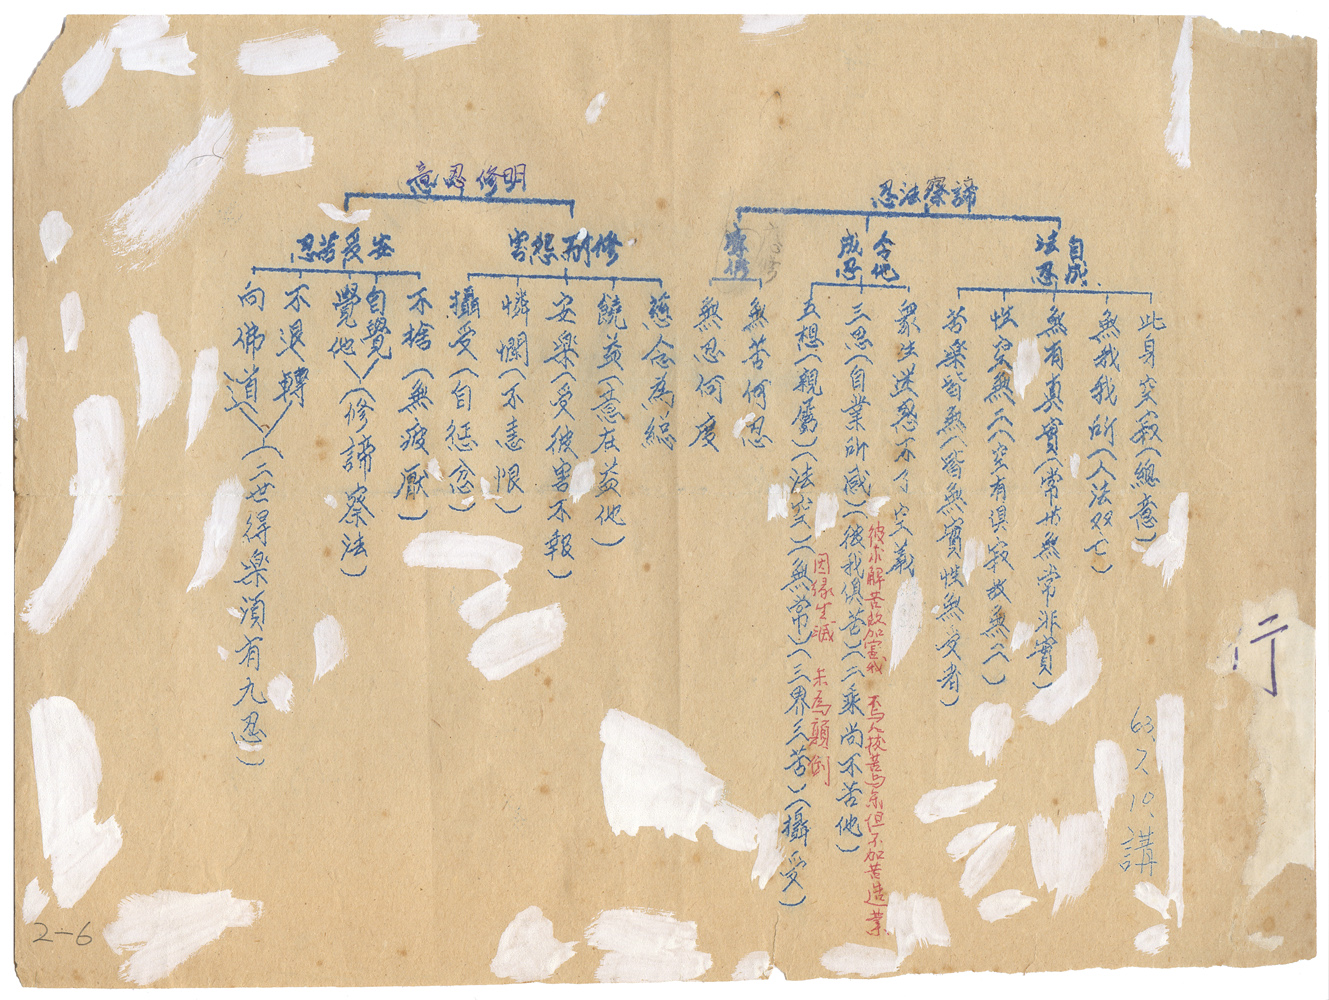 諦察法忍
自成法忍
此身空寂(總意)
無我我所(人法双亡)
無有真實(常共無常非實)
性空無二(空有俱寂故無二)
苦樂皆無(皆無實性無受者)
令他成忍
眾生迷惑不了空義
彼求解苦故加害我 焉人拔苦與樂但不加苦造業
三思(自業所感)(彼我俱苦)(二乘尚不苦他)
因緣生滅 未為顛倒
五想(親屬)(法空)(無常)(三界三苦)(攝受)
無苦何忍
無忍何度
明修忍意
修耐怨害
慈念為總
饒益(意在益他)
安樂(受彼害不報)
憐憫(不恚恨)
攝受(自懲忿)
安受苦忍
不捨(無疲厭)
自覺
覺他
(修諦察法)
不退轉
向佛道
(二世得樂須有九忍)
行
63.7.10.講
2-6